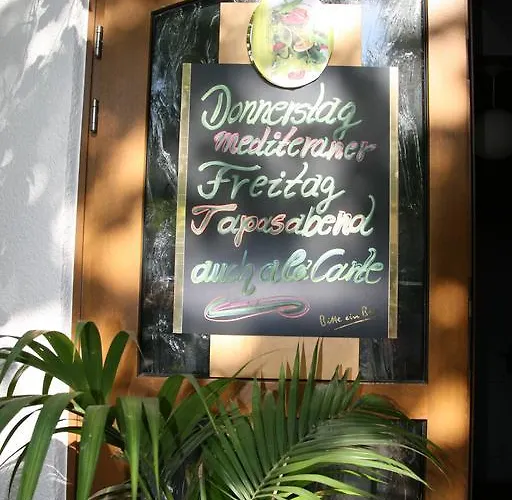 Donnerstag
mediteraner
Freitag
Tapasabend
auch a la Carte
Bitte ein